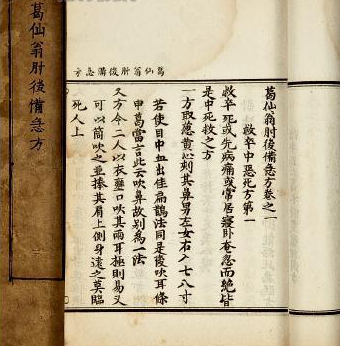 葛仙翁肘後備急方
葛仙翁肘後備急方
葛仙翁肘後備急方卷之一
救卒中惡死方第一
救卒死或先病痛或常居寢卧奄忽而絶皆
是中死救之方
一方取葱黄心刺其鼻男左女右入七八寸
若使目中血出佳扁鵲法同是後吹耳條
中葛當言此云吹鼻故别為一法
又方令二人以衣壅口吹其兩耳極則易又
可以筒吹之並捧其肩上側身遠之莫臨
死人上